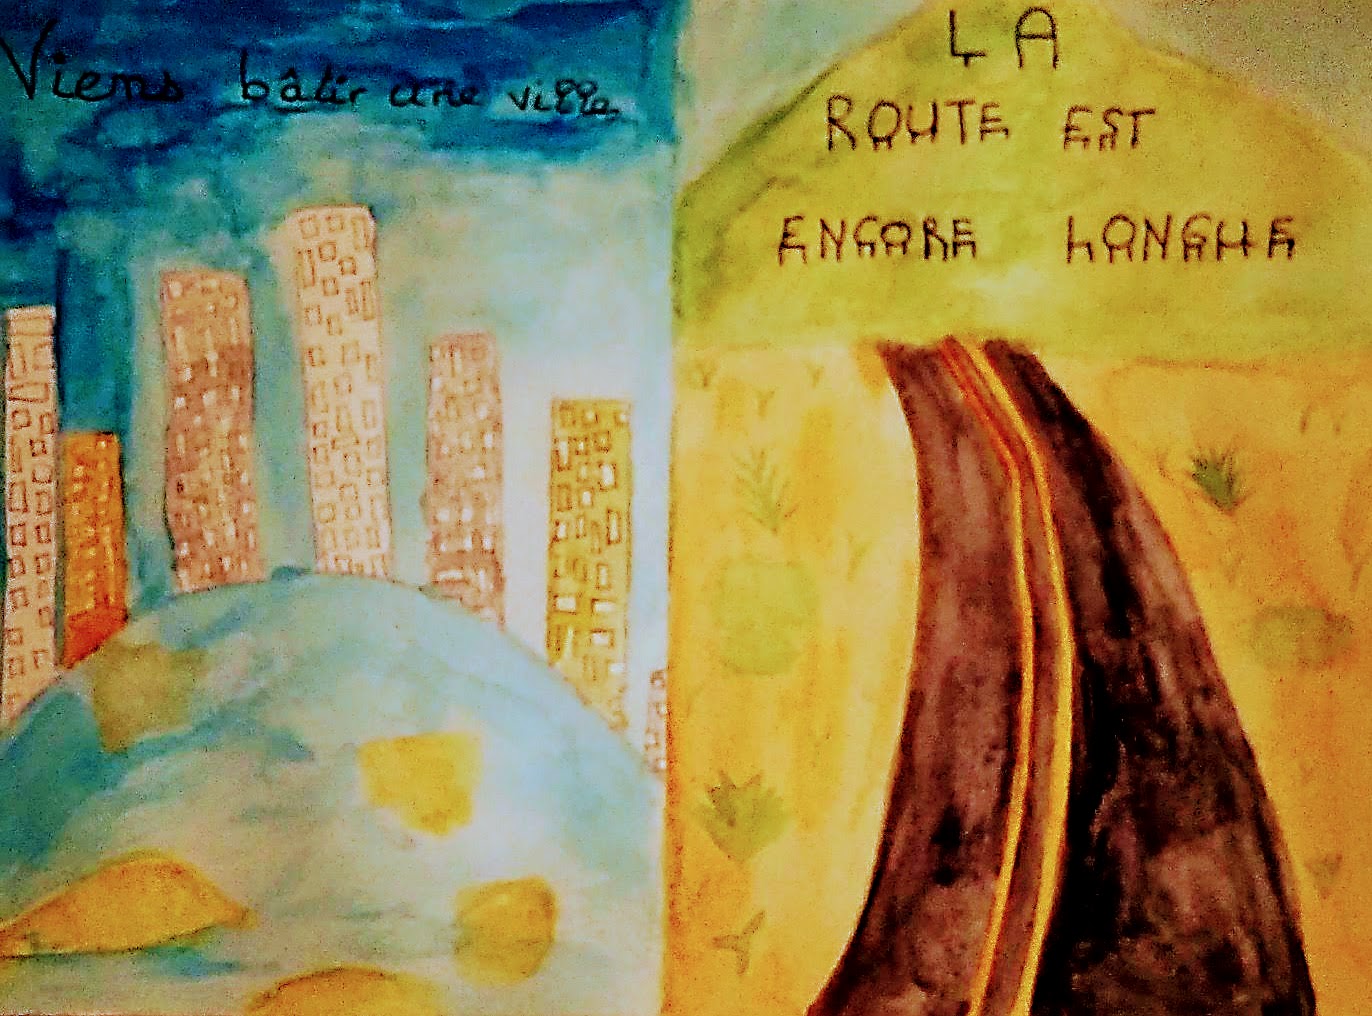 Viens bâtir une ville
LA
ROUTE EST
ENCORE LONGUE